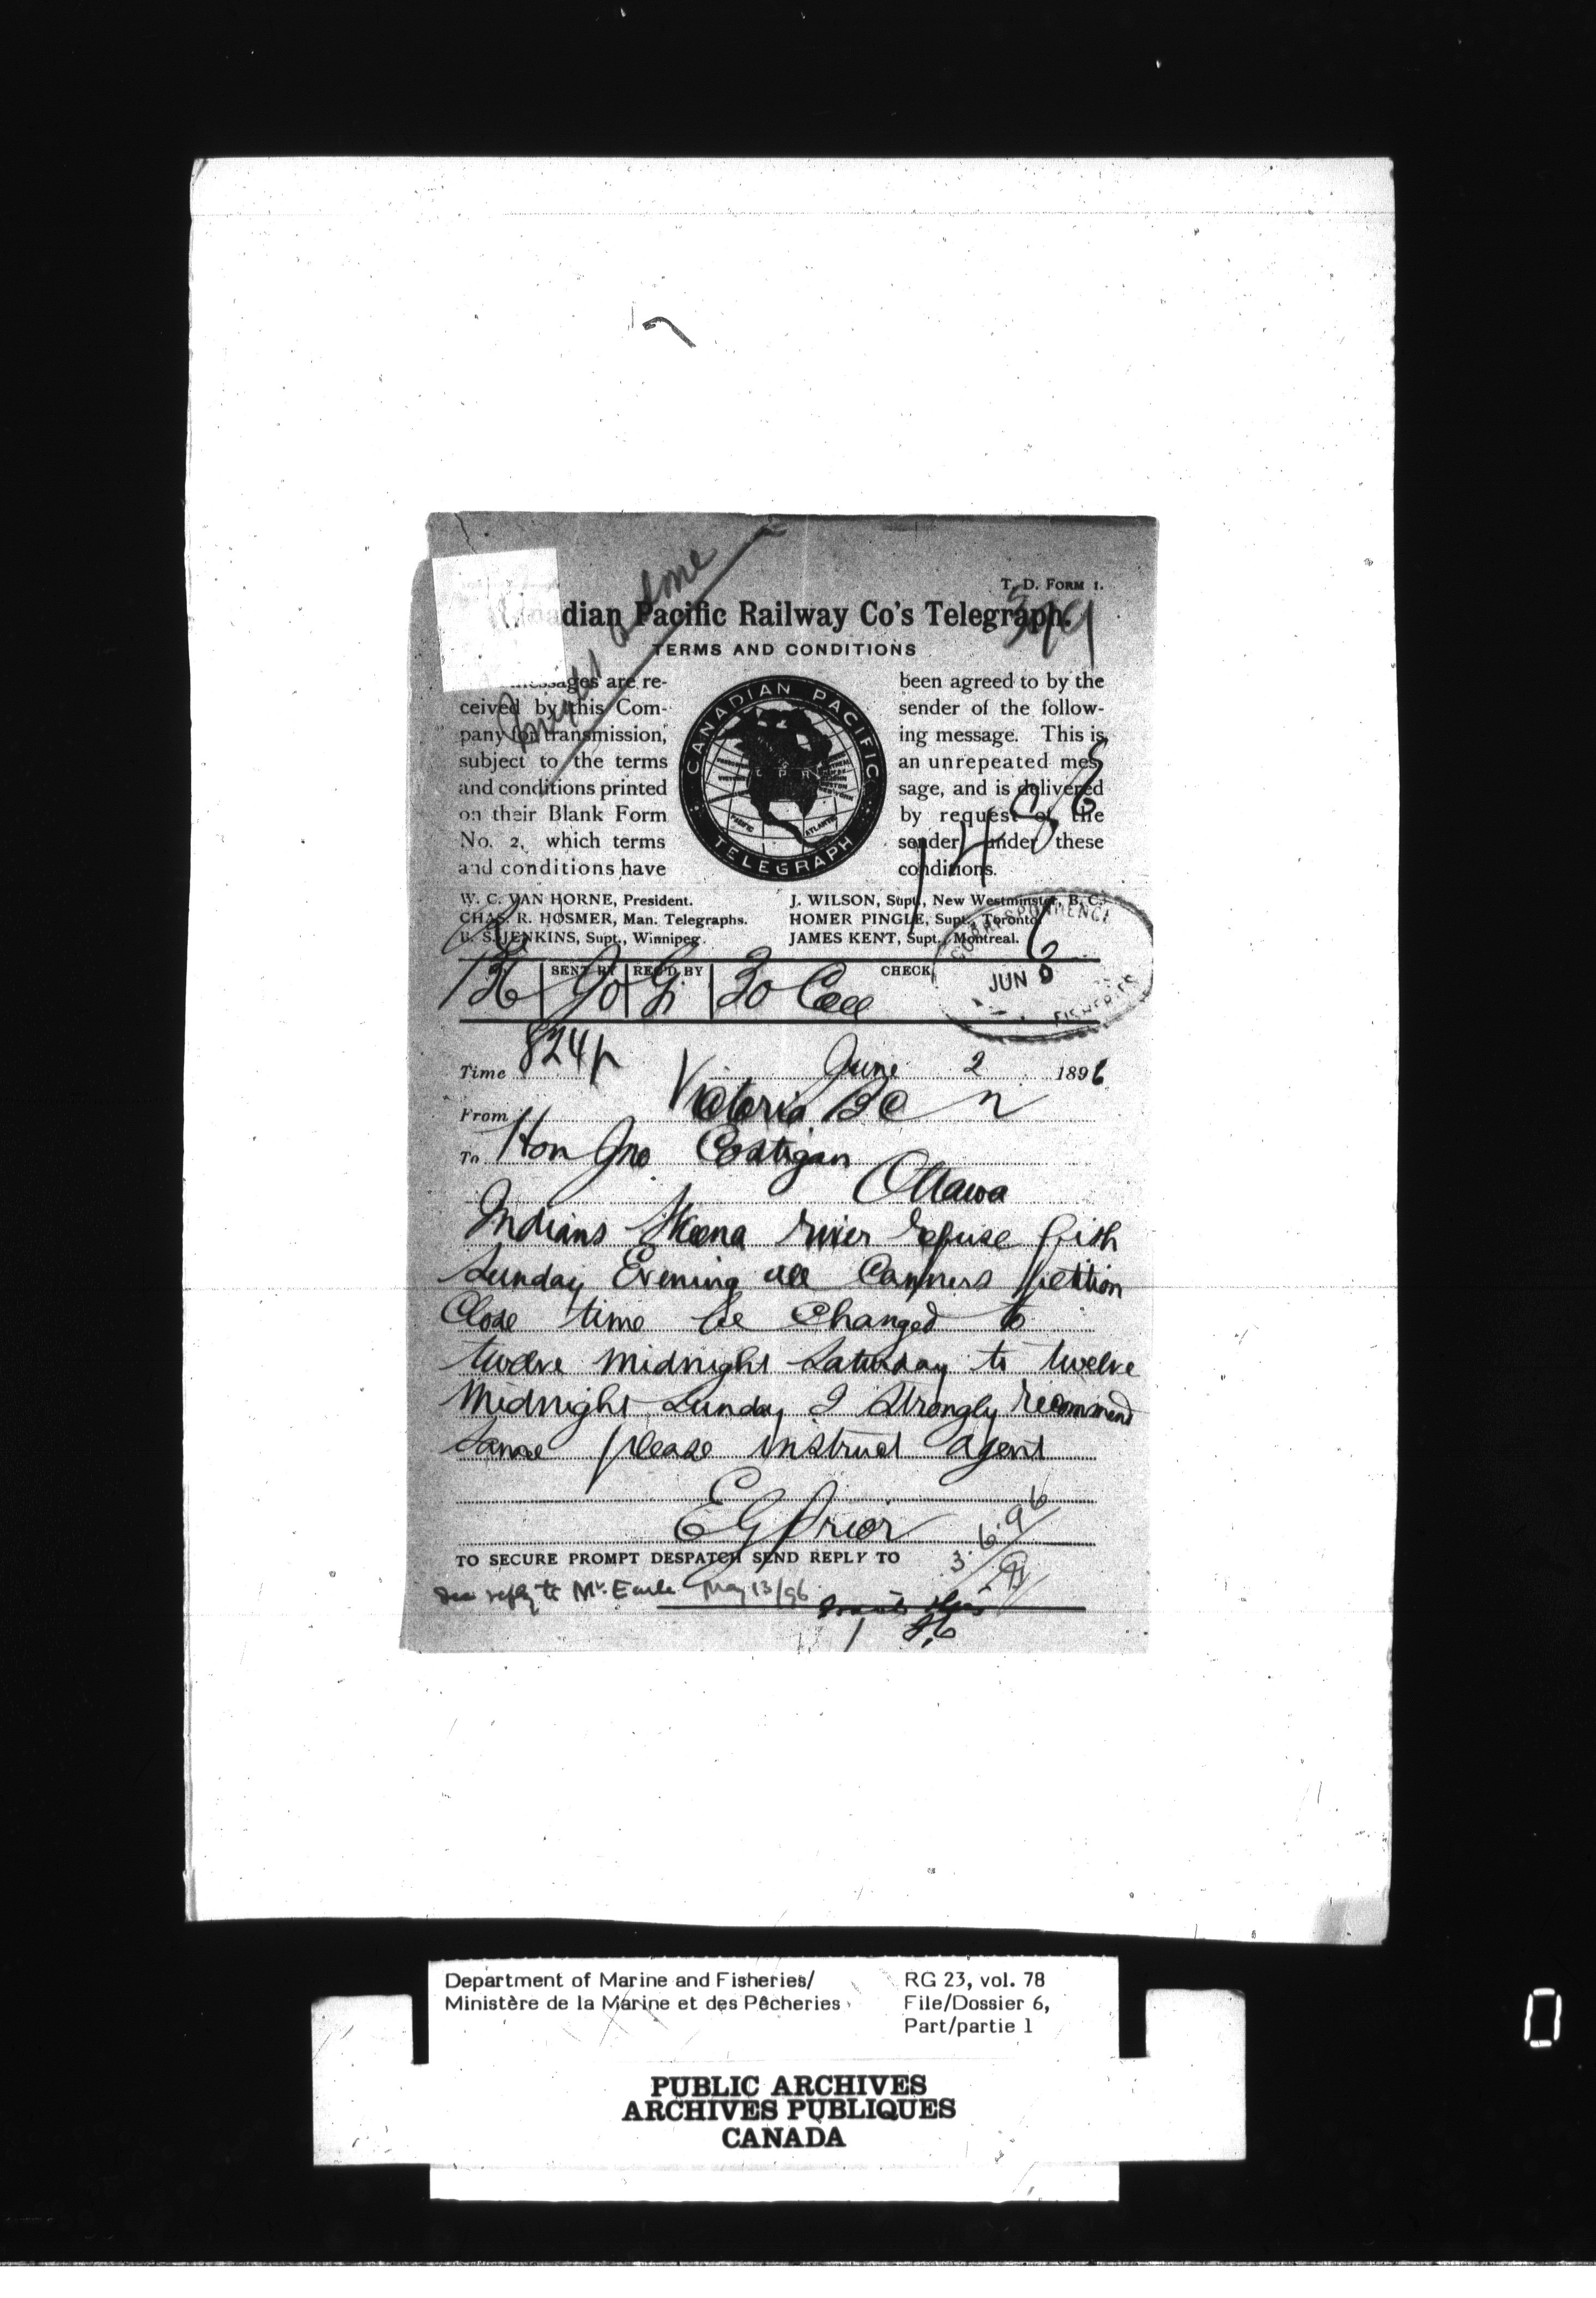 T. D. FORM 1.
579
dian Pacific Railway Co's Telegraph.
TERMS AND CONDITIONS
ages are re-
ceived by this Com-
pany for transmission,
subject to the terms
and conditions printed
on their Blank Form
No. 2, which terms
and conditions have
CANADIAN PACIFIC
TELEGRAPH
been agreed to by the
sender of the follow-
ing message. This is
an unrepeated mes-
sage, and is delivered
by request of the
sender under these
conditions.
W. C. VAN HORNE, President.
CHAS. R. HOSMER, Man. Telegraphs.
B. S. JENKINS, Supt., Winnipeg.
J. WILSON, Supt., New Westminster, B. C.
HOMER PINGLE, Supt., Toronto.
JAMES KENT, Supt., Montreal.
CORRESPONDENCE
JUN 9
FISHERIES
SENT BY REC'D BY CHECK
136 30 Coll
Time 824p June 2 1896
From Victoria BC
To Hon Jno Costigan
Ottawa
Indians Skeena river refuse fish
Sunday Evening all Canners petition
Close time be Changed to
twelve midnight Saturday to twelve
Midnight Sunday I strongly recommend
same please instruct agent
E G Prior
3.6.96
TO SECURE PROMPT DESPATCH SEND REPLY TO
See reply to Mr. Earle May 13/96
Department of Marine and Fisheries/
Ministère de la Marine et des Pêcheries
RG 23, vol. 78
File/Dossier 6,
Part/partie 1
PUBLIC ARCHIVES
ARCHIVES PUBLIQUES
CANADA